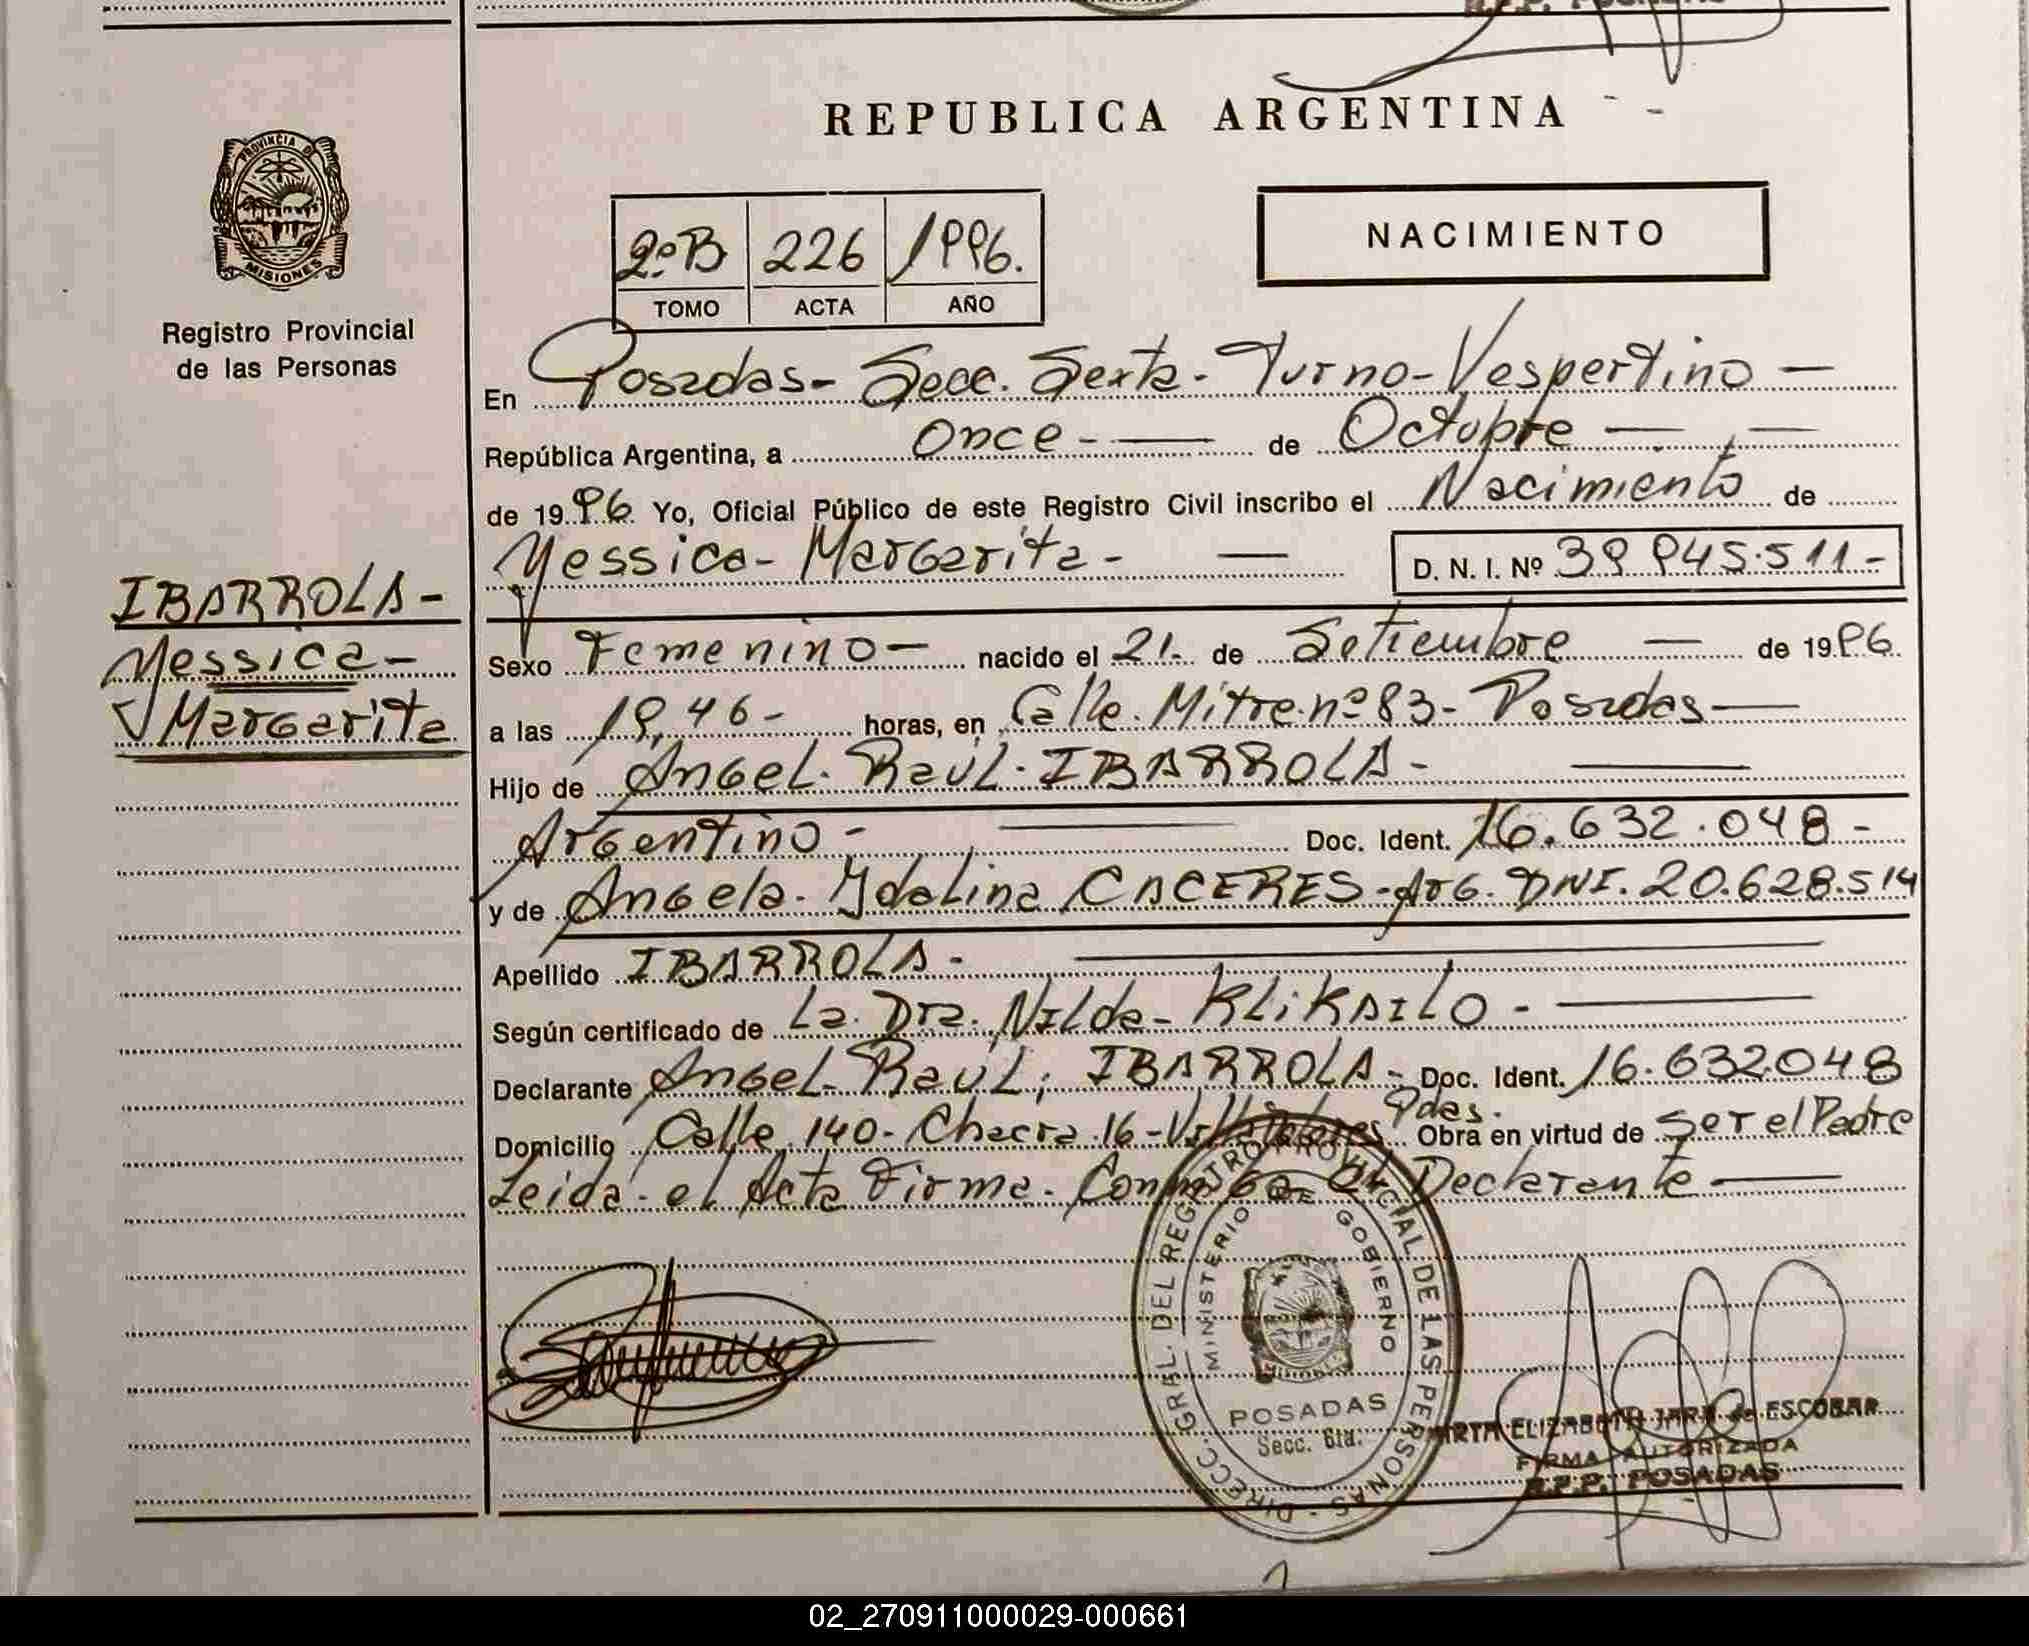 REPUBLICA ARGENTINA
PROVINCIA DE
MISIONES
Registro Provincial
de las Personas
2º B 226 1996.
TOMO ACTA AÑO
NACIMIENTO
En Posadas - Secc. Sexta - Turno - Vespertino -
República Argentina, a Once - de Octubre -
de 1996 Yo, Oficial Público de este Registro Civil inscribo el Nacimiento de
Yessica - Margarita - D. N. I. Nº 39.945.511.-
IBARROLA -
Yessica -
Margarita
Sexo Femenino - nacido el 21. de Setiembre - de 1996.
a las 19,46 - horas, en Calle. Mitre. nº 83 - Posadas -
Hijo de Angel. Raúl. IBARROLA -
Argentino - Doc. Ident. 16.632.048 -
y de Angela. Idalina CACERES - Arg. DNI. 20.628.514
Apellido IBARROLA -
Según certificado de La. Dra. Nilda -
Declarante Angel. Raúl, IBARROLA - Doc. Ident. 16.632048
Domicilio Calle. 140 - Chacra. 16 - Pdas. Obra en virtud de Ser el Padre
Leida - el Acta Firma. el Declarante -
DIRECC. GRAL. DEL REGISTRO PROVINCIAL DE LAS PERSONAS -
MINISTERIO DE GOBIERNO
POSADAS
Secc. 6ta.
ELIZABETH JARA de ESCOBAR
FIRMA AUTORIZADA
R.P.P. POSADAS
02_270911000029-000661